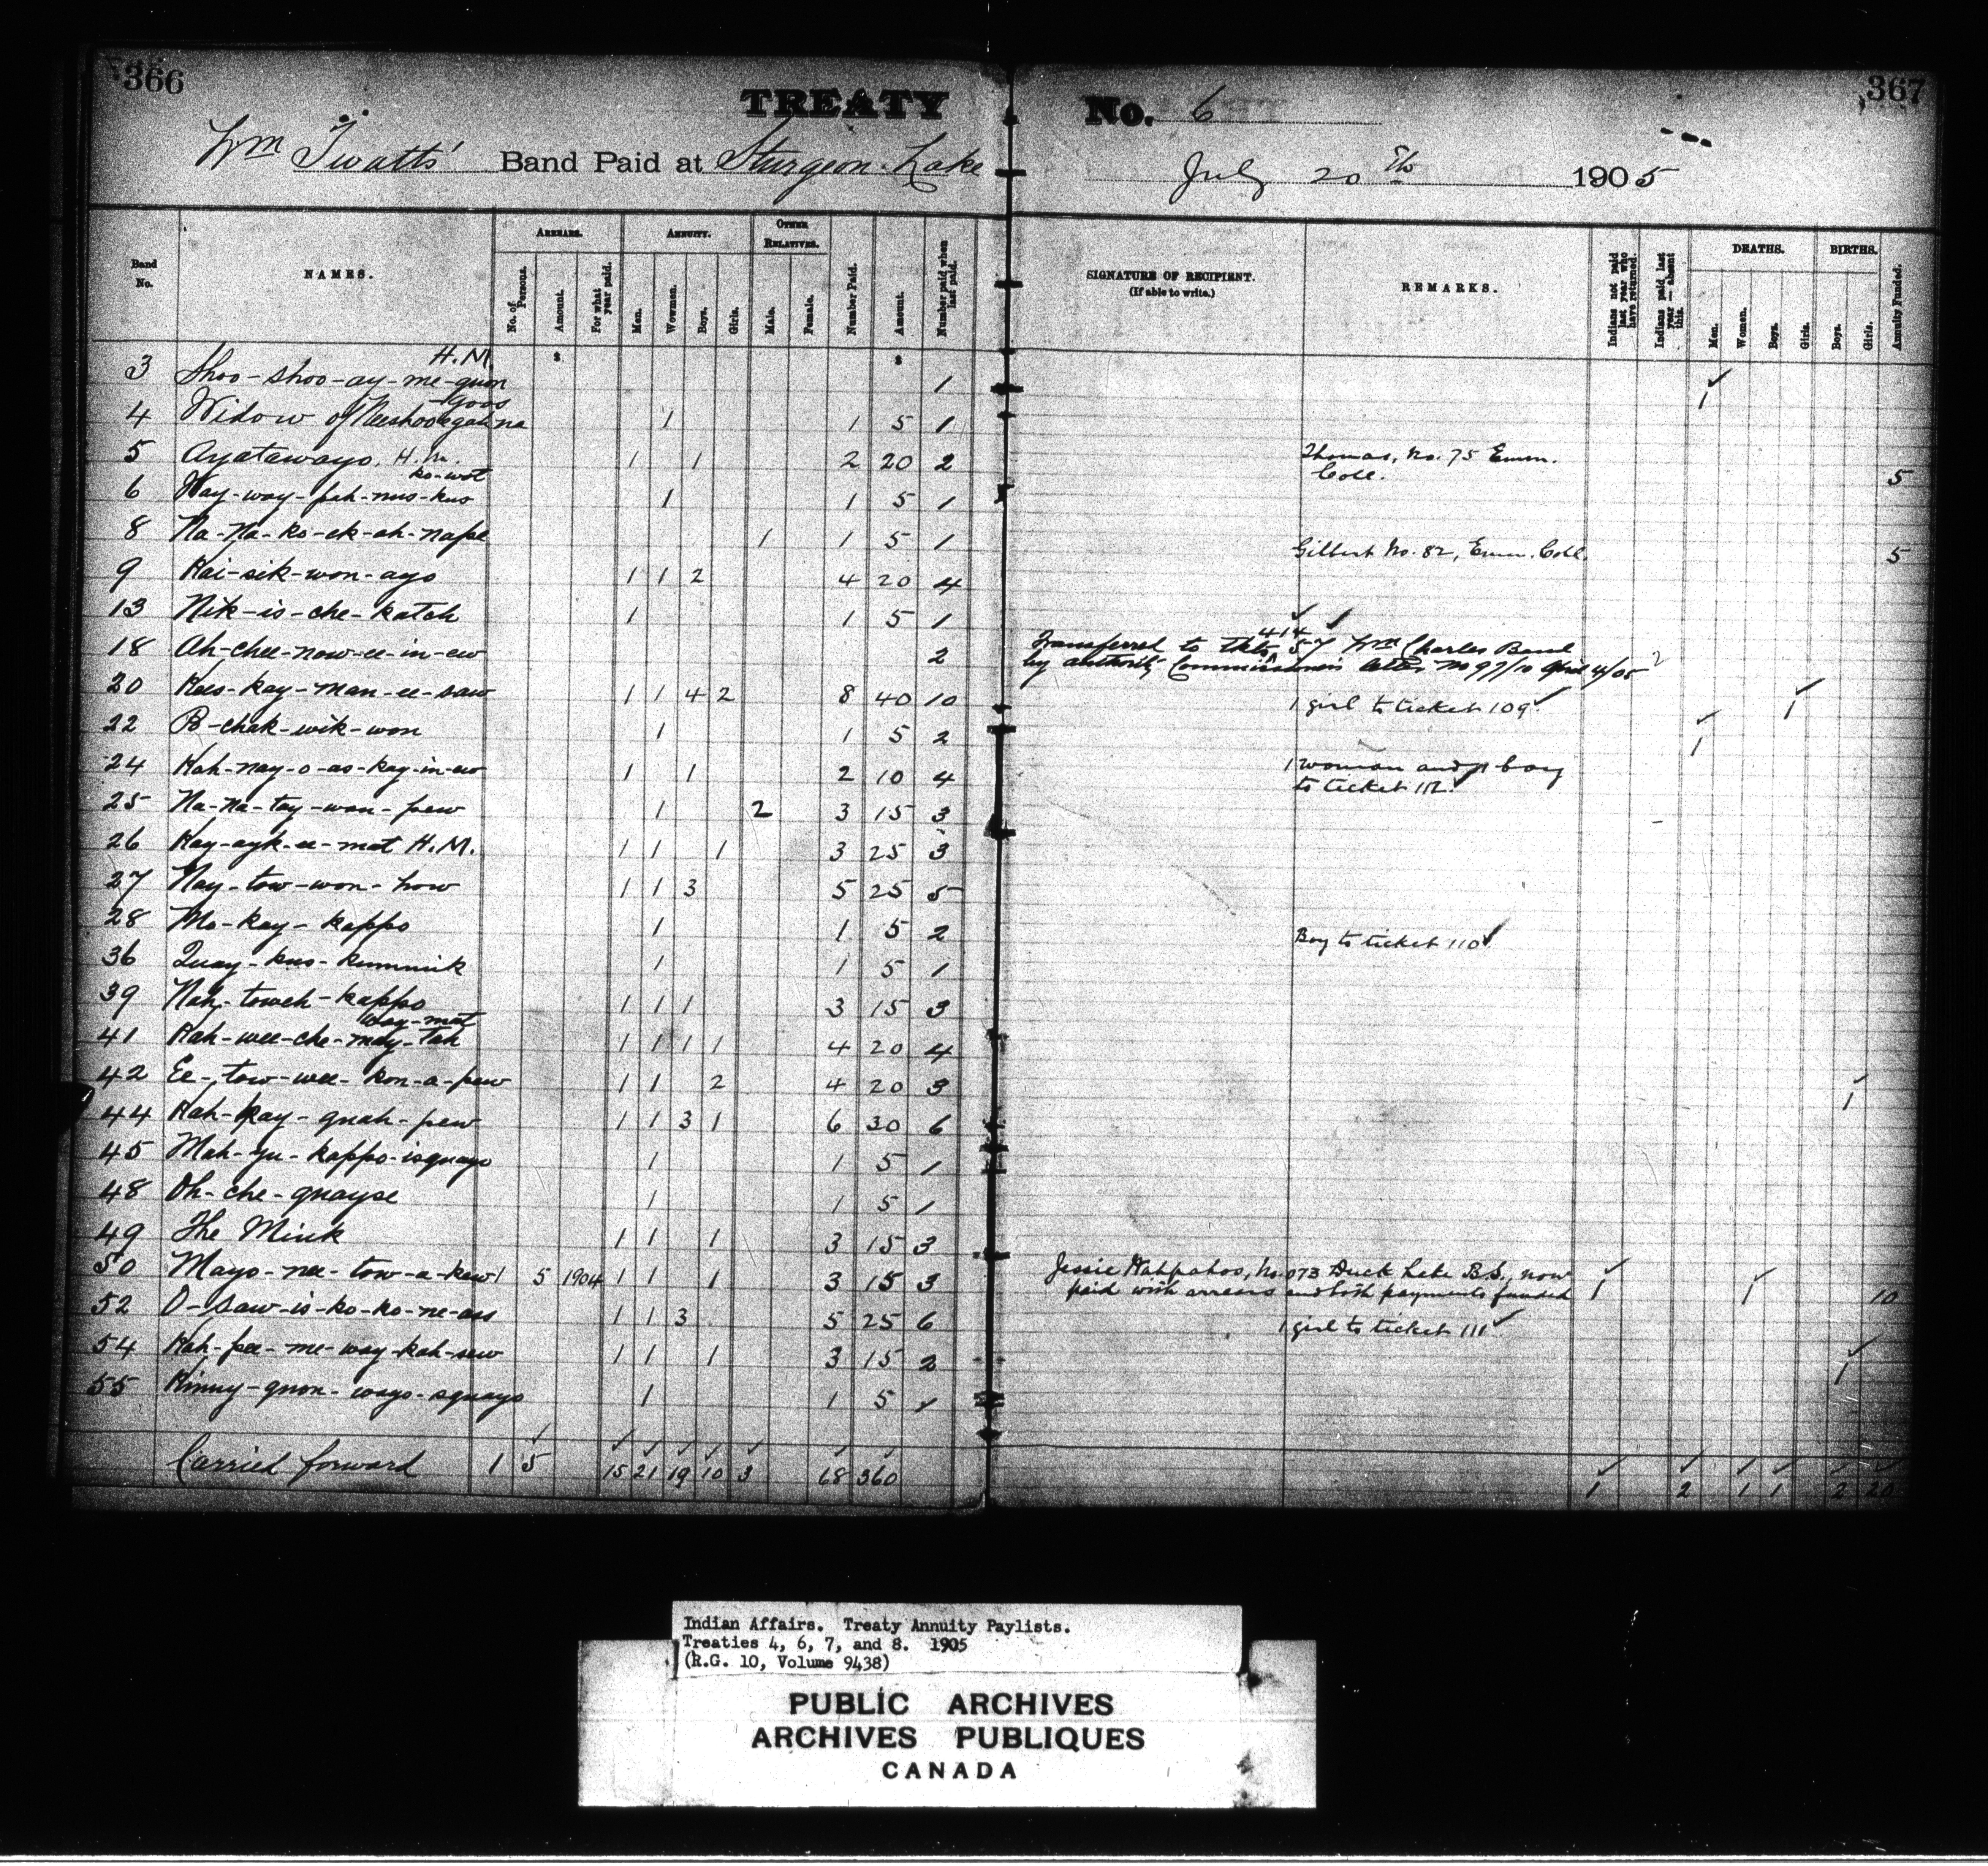 366
TREATY
No. 6
367
Wm Twatts' Band Paid at Sturgeon Lake
July 20th 1905
Band No.
NAMES.
ARREARS.
No. of Persons.
Amount.
For what year paid.
ANNUITY.
Men.
Women.
Boys.
Girls.
OTHER RELATIVES.
Male.
Female.
Number Paid.
Amount.
Number paid when last paid.
SIGNATURE OF RECIPIENT.
(If able to write.)
REMARKS.
Indians not paid last year who have returned.
Indians paid last year — absent this.
DEATHS.
Men.
Women.
Boys.
Girls.
BIRTHS.
Boys.
Girls.
Annuity Funded.
$ $
3 Shoo-shoo-ay-me-guon H.M. 1 1
4 Widow of 1 1 5 1
5 Ayatawayo, H.M. 1 1 2 20 2 Thomas, No. 75 Emm. Coll. 5
6 Way-way-pah-nus-kus ko-wot 1 1 5 1
8 Na-Na-ko-ek-ah-nape 1 1 5 1 Gilbert No. 82, Emm. Coll. 5
9 Kai-sik-won-ayo 1 1 2 4 20 4
13 Nik-is-che-katch 1 1 5 1
18 Ah-chee-now-ee-in-ew 2 Transferred to tkts 414 57 Wm Charles Band
by authority Commissioners letter No 97/10 April 4/05 2
20 Kees-kay-man-ee-saw 1 1 4 2 8 40 10 1 girl to ticket 109 1
22 B-chak-wik-won 1 1 5 2 1
24 Kah-nay-o-as-kay-in-ew 1 1 2 10 4 1 woman and 1 boy
to ticket 112
25 Na-na-tay-wan-pew 1 2 3 15 3
26 Kay-ayk-ee-mat H.M. 1 1 1 3 25 3
27 Nay-tow-won-how 1 1 3 5 25 5
28 Mo-kay-kappo 1 1 5 2 Boy to ticket 110
36 Quay-kus-kummik 1 1 5 1
39 Nah-toweh-kappo 1 1 1 3 15 3
41 Kah-wee-che-may-tah way-mat 1 1 1 1 4 20 4
42 Ee-tow-wee-kon-a-pew 1 1 2 4 20 3 1
44 Kah-kay-quah-pew 1 1 3 1 6 30 6
45 Mah-yu-kappo-isquayo 1 1 5 1
48 Oh-che-quayse 1 1 5 1
49 The Mink 1 1 1 3 15 3
50 Mayo-nee-tow-a-kew 1 5 1904 1 1 1 3 15 3 Jessie Kahpahoo, No. 073 Duck Lake B.S., now
paid with arrears and both payments funded 1 1 10
52 O-saw-is-ko-ko-ne-ass 1 1 3 5 25 6 1 girl to ticket 111
54 Kah-pee-me-way-kah-sew 1 1 1 3 15 2 1
55 Kinny-quon-wayo-squayo 1 1 5 1
Carried forward 1 5 15 21 19 10 3 68 360 1 2 1 1 2 20
Indian Affairs. Treaty Annuity Paylists.
Treaties 4, 6, 7, and 8. 1905
(R.G. 10, Volume 9438)
PUBLIC ARCHIVES
ARCHIVES PUBLIQUES
CANADA